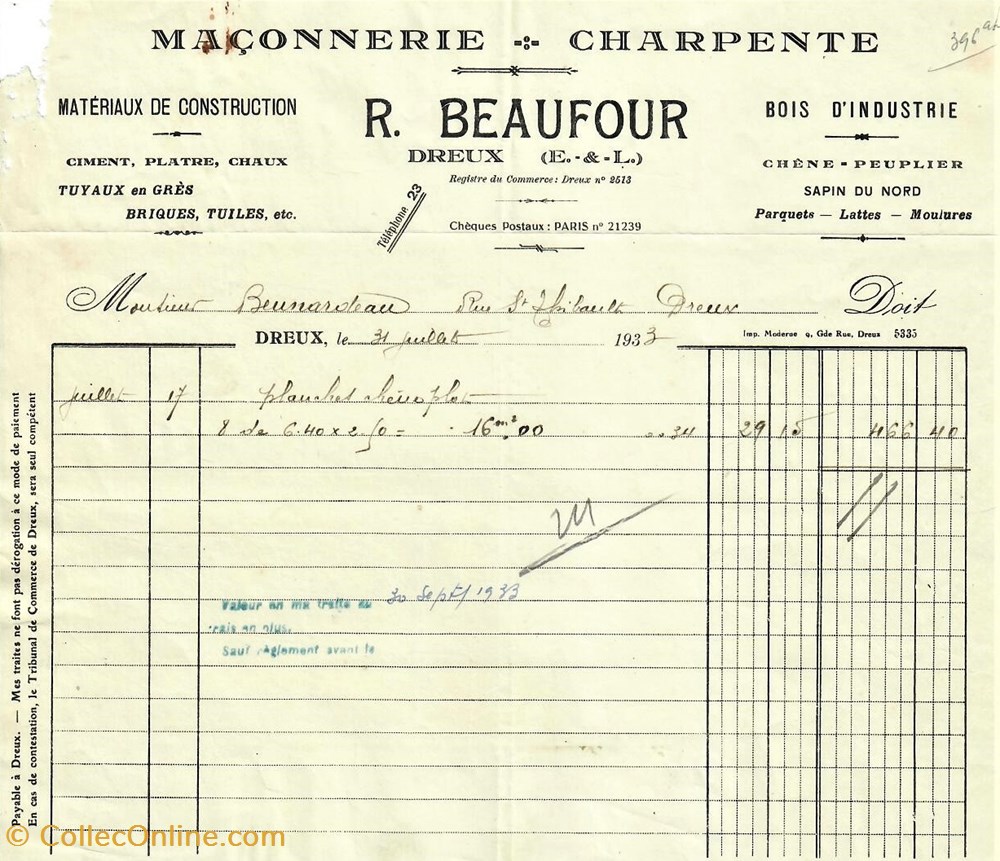 MAÇONNERIE -:- CHARPENTE
396
MATÉRIAUX DE CONSTRUCTION
CIMENT, PLATRE, CHAUX
TUYAUX en GRÈS
BRIQUES, TUILES, etc.
R. BEAUFOUR
DREUX (E.-&-L.)
Registre du Commerce: Dreux nº 2513
Téléphone 23
Chèques Postaux : PARIS nº 21239
BOIS D'INDUSTRIE
CHÊNE - PEUPLIER
SAPIN DU NORD
Parquets — Lattes — Moulures
Monsieur Beunardeau Rue St Thibault Dreux Doit
DREUX, le 31 juillet 1933
Imp. Moderne 9, Gde Rue, Dreux 5335
juillet 17 planches
8 de 6.40 x 2.50 = 16 m² 00 34 29 15 466 40
Valeur en ma traite au 30 Sept 1933
rais en plus.
Sauf règlement avant le
Payable à Dreux. — Mes traites ne font pas dérogation à ce mode de paiement
En cas de contestation, le Tribunal de Commerce de Dreux, sera seul compétent
© CollecOnline.com